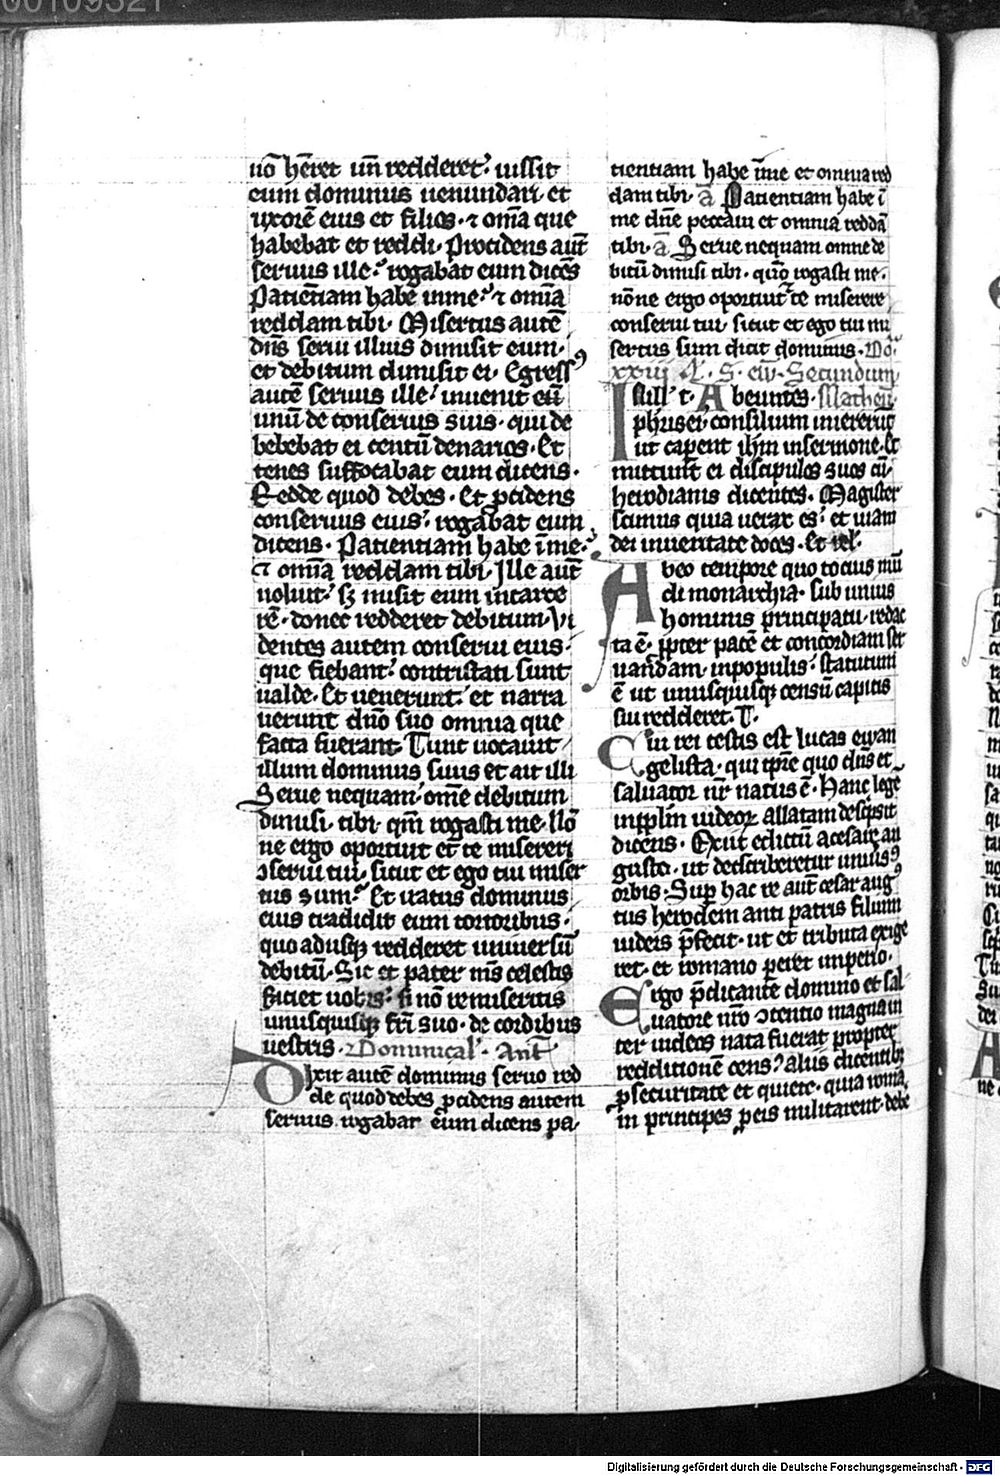 00109321
nō hēret vn̄ redderet. iussit
eum dominus uenundari. et
uxorē eius et filios. ⁊ om̄ia que
habebat et reddi. Procidens aūt
seruus ille. rogabat eum dicēs
Patiētiam habe inme. ⁊ om̄ia
reddam tibi. Misertus autē
dn̄s serui illius dimisit eum.
et debitum dimisit ei. Egressꝰ
autē seruus ille. inuenit eū
unū de conseruis suis. qui de
bebebat ei centū denarios. Et
tenēs suffocabat eum dicens.
Redde quod debes. Et ꝓcidens
conseruus eius. rogabat eum
dicens. Patientiam habe īme.
⁊ om̄ia reddam tibi. Ille aūt
noluit. sꝫ misit eum incarce
rē. donec redderet debitum. Vi
dentes autem conserui eius.
que fiebant. contristati sunt
ualde. Et uenerunt. et narra
uerunt dn̄o suo omnia que
facta fuerant. Tunc uocauit
illum dominus suus et ait illi
Serue nequam. om̄e debitum
dimisi. tibi. qm̄ rogasti me. Nō
ne ergo oportuit et te misereri
ꝯserui tui. sicut et ego tui miser
tus sum. Et iratus dominus
eius tradidit eum tortoribus.
quo adusqꝫ redderet uniuersū
debitū. Sic et pater m̄s celestis
faciet uobis. si nō remiseritis
unusquisqꝫ fr̄i suo. de cordibus
uestris. Dominical. Ant̄
Dixit autē dominus seruo red
de quod debes ꝓcidens autem
seruus rogabat eum dicens pa-
tientiam habe īme et omnia red
dam tibi. ā Patientiam habe ī
me dn̄e peccaui et omnia reddā
tibi. ā Serue nequam omne de
bitū dimisi tibi. qm̄o rogasti me.
nōne ergo oportuit te miserere
conserui tui. sicut et ego tui mi
sertus sum dicit dominus. Do.
xxiii L. S. eūḡ. Secundum
Iᷠ ill t. Abeuntes. Matheū.
pharisei. consilium inierunt
ut caperent ih̄m insermone. Et
mittunt ei discipulos suos cū.
herodianis dicentes. Magister
scimus quia uerax es. et uiam
dei inueritate doces. Et rel.
Ab eo tempore quo totius mū
di monarchia. sub unius
hominis principatu. redac
ta ē. ꝓpter pacē et concordiam ser
uandam. inpopulis. statutum
ē ut unusquisqꝫ censū capitis
sui redderet. T.
Cui rei testis est lucas ewan
gelista. qui tp̄re quo dn̄s et
saluator nr̄ natus ē. Hanc legē
dicens. Exiit edictū acesare au
gusto. ut describeretur uniuꝰsꝰ
orbis. Sup hac re aūt cesar augꝰ
tus herodem anti patris filium
iudeis p̄fecit. ut et tributa exige
ret. et romano pareret imperio.
Ergo p̄dicante domino et sal
uatore nr̄o ꝯtentio magna in
ter iudeos nata fuerat propter
redditionē cens. aliis dicentibꝫ
ꝓ securitate et quiete. quia romā
in principes ꝓ eis militarent. debe
Digitalisierung gefördert durch die Deutsche Forschungsgemeinschaft - DFG